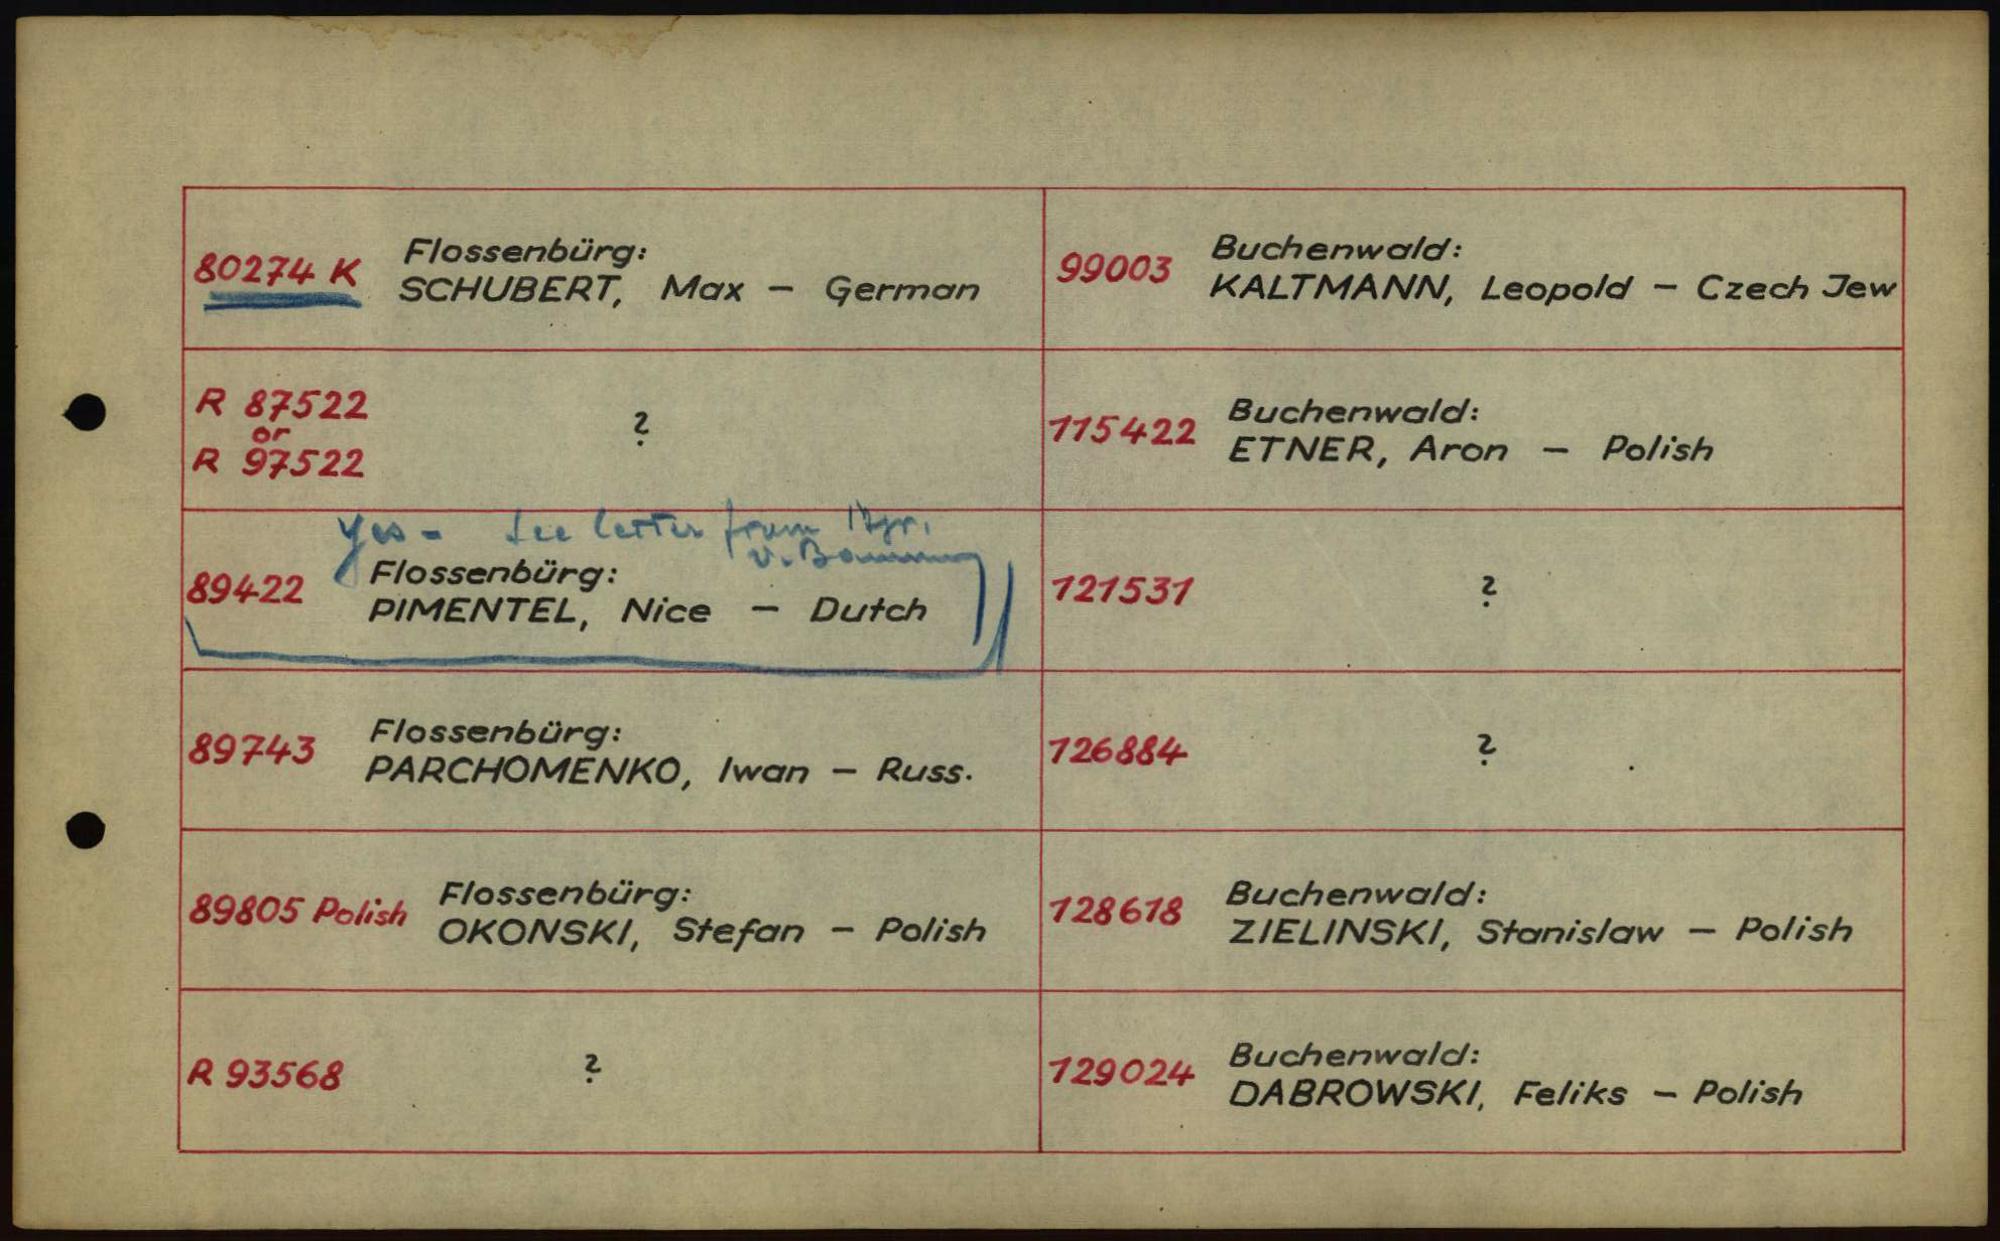 80274 K
Flossenbürg:
SCHUBERT, Max – German
99003
Buchenwald:
KALTMANN, Leopold – Czech Jew
R 87522
or
R 97522
?
115422
Buchenwald:
ETNER, Aron – Polish
yes - see letter from
v.
89422
Flossenbürg:
PIMENTEL, Nice – Dutch
121531
?
89743
Flossenbürg:
PARCHOMENKO, Iwan – Russ.
126884
?
89805 Polish
Flossenbürg:
OKONSKI, Stefan – Polish
128618
Buchenwald:
ZIELINSKI, Stanislaw – Polish
R 93568
?
129024
Buchenwald:
DABROWSKI, Feliks – Polish